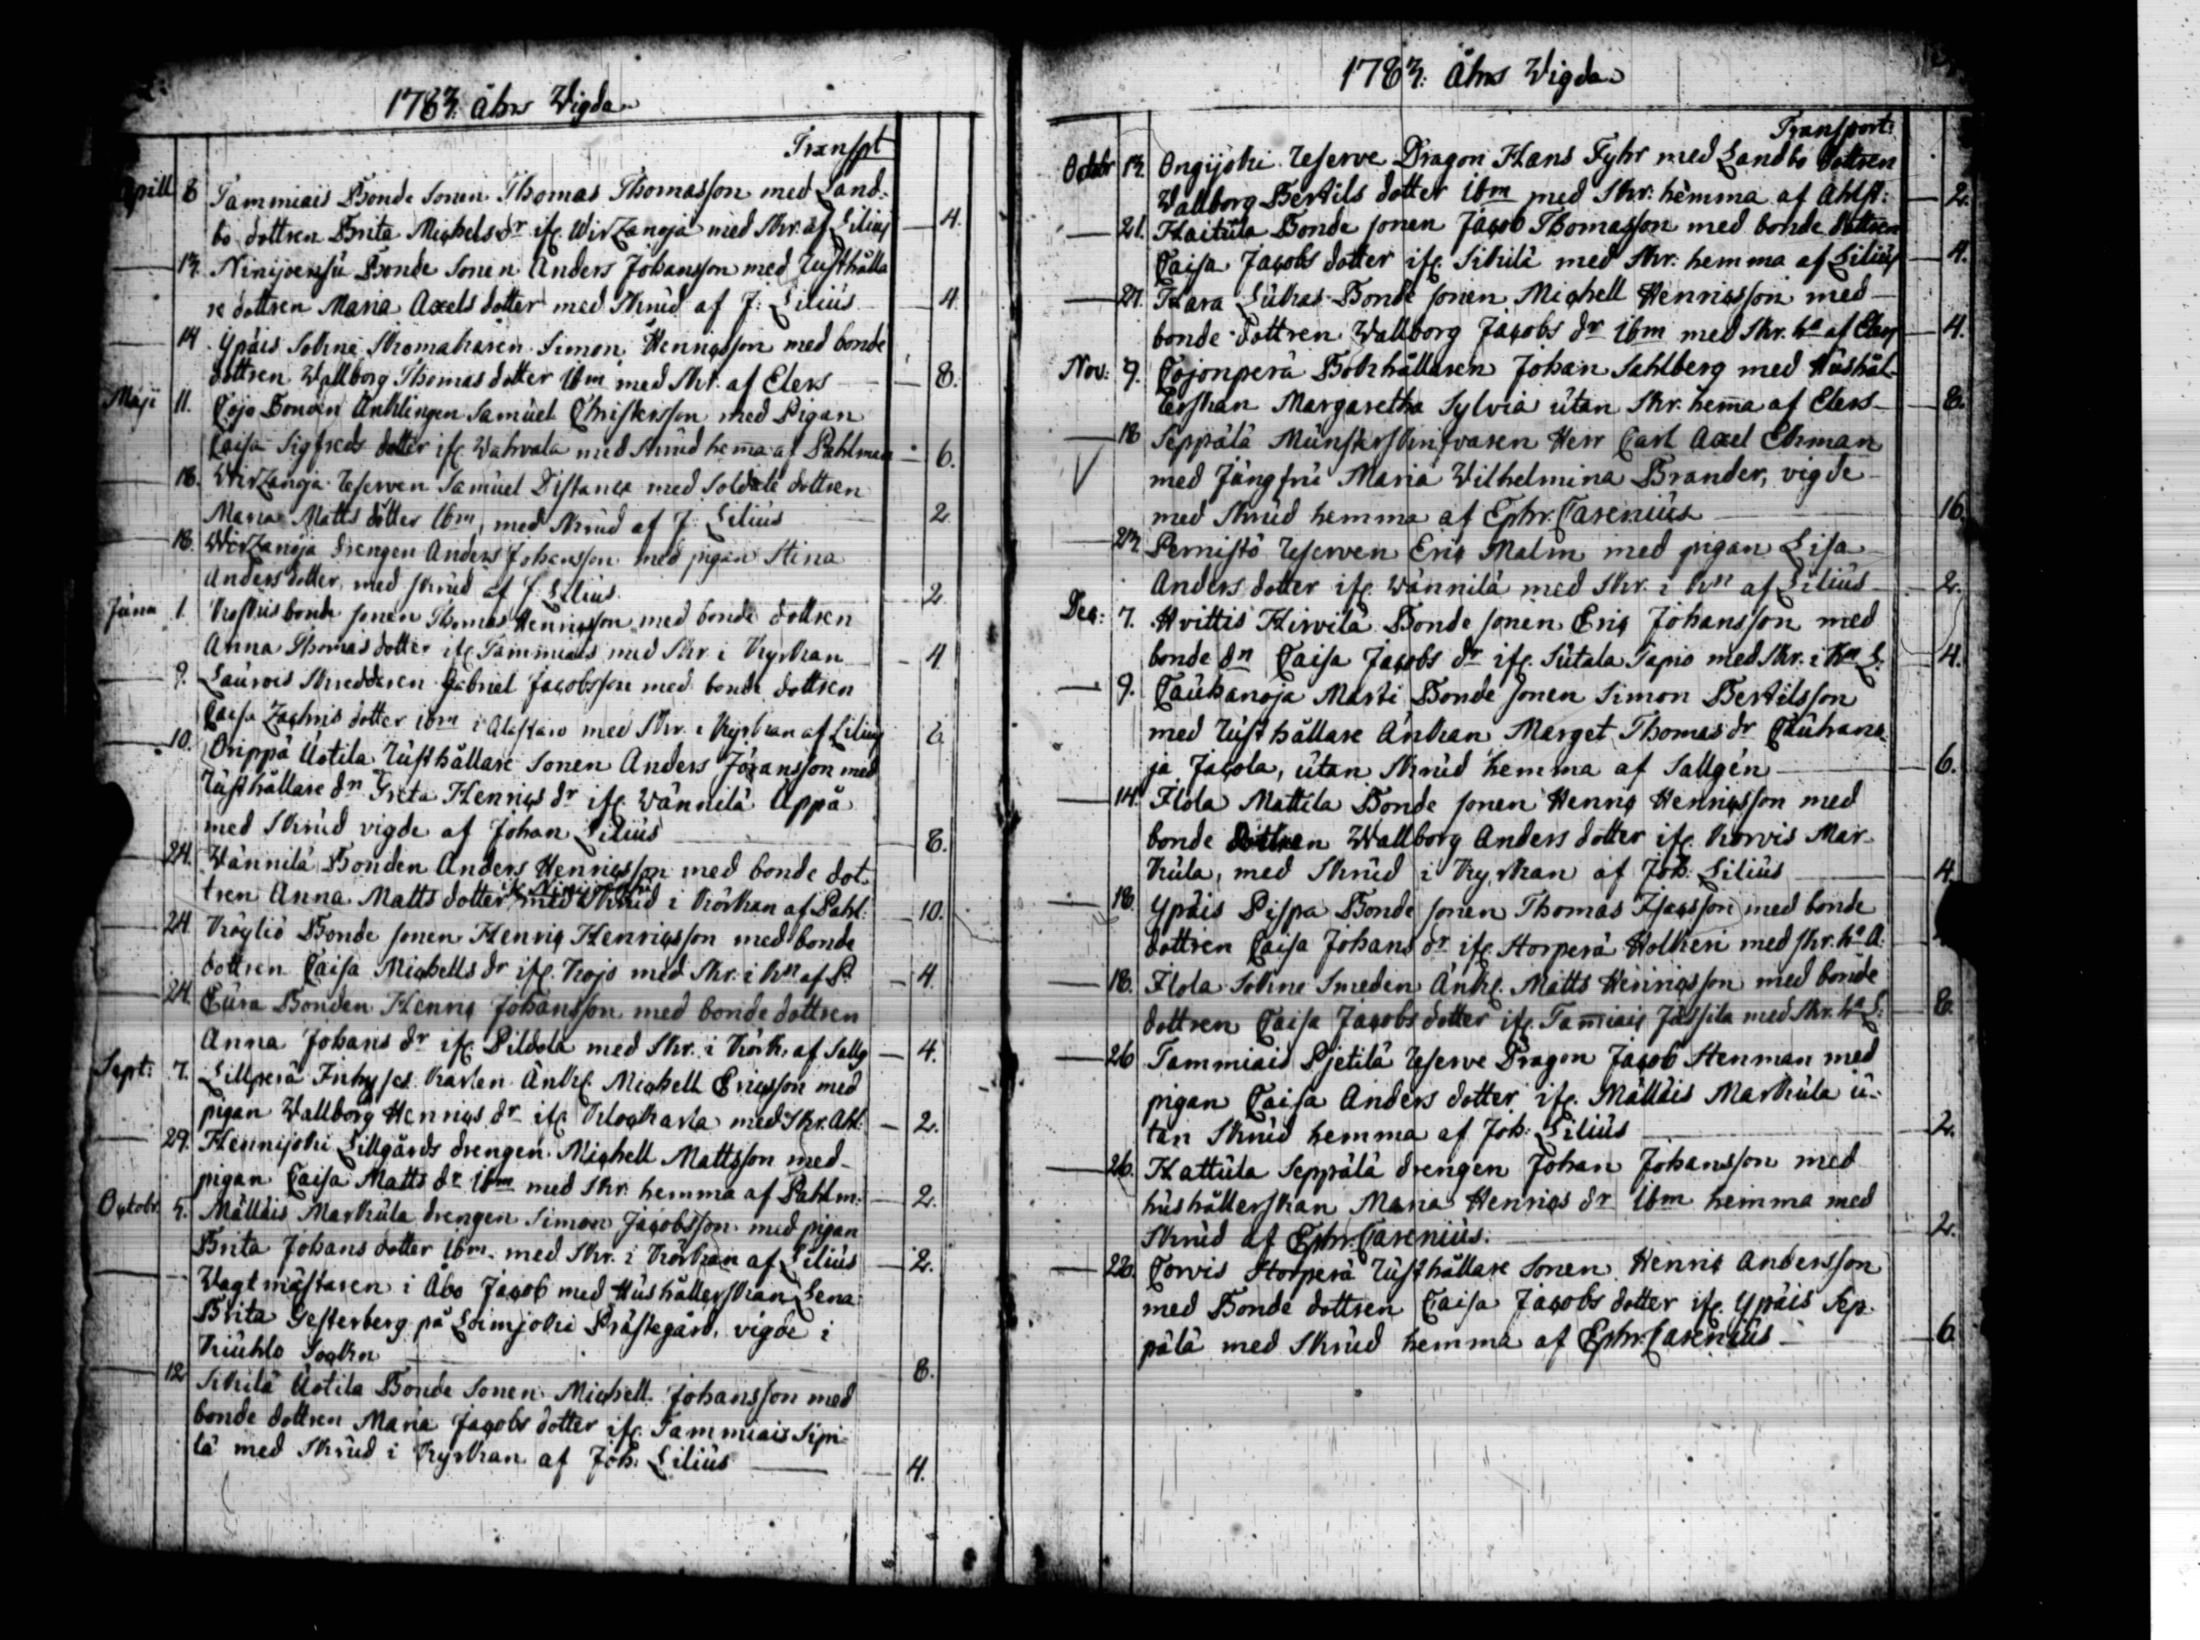 1783. åhrs Wigda
Transpt
Aprill 8 Tammiais Bonde Sonen Thomas Thomasson med Land-
bo dottren Brita Michels dr ifr. Wirzanoja med Skr. af Lilius 4.
13. Ninijoensu Bonde Sonen Anders Johansson med Rusthålla
re dottren Maria Axels dotter med Skrud af J. Lilius 4.
14 Ypäis Sokne Skomakaren Simon Henricsson med bonde
dottren Wallborg Thomas dotter ibm med Skr. af Elers 8.
Maji 11. Cojo Bonden Änklingen Samuel Christersson med Pigan
Caisa Sigfreds dotter ifr. Wahvala med Skrud hema af Pahlman 6.
18. Wirzanoja Reserven Samuel Distance med Soldate dottren
Maria Matts dotter ibm, med Skrud af J. Lilius 2.
18. Wirzanoja drengen Anders Johansson med pigan Stina
Anders dotter, med skrud af J. Lilius. 2
Juni 1. bonde sonen Thomas Henricsson med bonde dottren
Anna Thomas dotter ifr Tammiais med Skr. i Kyrkan 4
9. Laurois Skredderen Gabriel Jacobsson med bonde dottren
Caisa Zachris dotter ibm i Alastaro med Skr. i Kyrkan af Lilius 6
10. Orippä Uotila Rusthållare Sonen Anders Jöransson med
Rusthållare dn Greta Henrics dr ifr. Wännilä Uppå
med Skrud vigde af Johan Lilius 8.
24. Wännilä Bonden Anders Henricsson med bonde dot
tren Anna Matts dotter ifr. Ninijoensu med Skrud i Körkan af Pahl. 10.
24. Köyliö Bonde sonen Henric Henricsson med bonde
dottren Caisa Michells dr ifr. Kojo med Skr. i Kn af P. 4.
24. Eura Bonden Henric Johansson med bonde dottren
Anna Johans dr ifr. Pildola med Skr. i Körk. af Sallg 4.
Sept: 7. Lillperä Inhyses Karlen Änkl. Michell Ericsson med
pigan Wallborg Henrics dr ifr. Klockarla med Skr. Ahl. 2.
29. Hennijoki Lillgårds drengen Michell Mattsson med
pigan Caisa Matts dr ibm med Skr. hemma af Pahlm: 2.
Octobr. 5. Mälläis Markula drengen Simon Jacobsson med pigan
Brita Johans dotter ibm. med Skr. i Körkan af Lilius 2.
Wagtmästaren i Åbo Jacob med Hushållerskan Lena
Brita Gesterberg på Loimjoki Prästegård, vigde i
Kiuhlo Sockn 8.
12 Sikilä Uotila Bonde Sonen Michell Johansson med
bonde dottren Maria Jacobs dotter ifr. Tammiais Sipi-
lä med Skrud i Kyrkan af Joh. Lilius 4.
1783. åhrs Wigda
Transport:
Octobr 13. Ongijoki Reserve Dragon Hans Fyhr med Landbo dottren
Wallborg Bertils dotter ibm med Skr. hemma af Ahlst: 2.
21. Haitula Bonde sonen Jacob Thomasson med bonde dottren
Caisa Jacobs dotter ifr. Sikilä med Skr. hemma af Lilius 4.
27. Hara Lukas Bonde sonen Michell Henricsson med
bonde dottren Wallborg Jacobs dr ibm med Skr. ha af Elers 4.
Nov: 9. Cojonperä Bokhållaren Johan Sahlberg med Hushål-
lerskan Margaretha Sylvia utan Skr. hema af Elers 8.
18 Seppälä Munsterskrifvaren Herr Carl Axel Ekman
med Jungfru Maria Wilhelmina Brander, vigde
med Skrud hemma af Ephr. Carenius 16.
23. Pernistö Reserven Eric Malm med pigan Lisa
Anders dotter ifr. Wännilä med Skr. i Kn af Lilius 2.
Dec: 7. Hvittis Hirvilä Bonde sonen Eric Johansson med
bonde dn Caisa Jacobs dr ifr. Sutala Tapio med Skr. i Kn L. 4.
9. Cauhanoja Marti Bonde sonen Simon Bertilsson
med Rusthållare Änkan Marget Thomas dr Cauhano
ja Jacola, utan Skrud hemma af Sallgén 6.
14. Flola Mattila Bonde sonen Henric Henricsson med
bonde dottren Wallborg Anders dotter ifr. Korvis Mar-
kula, med Skrud i Kyrkan af Joh. Lilius 4.
18. Ypäis Pispa Bonde sonen Thomas Isacsson med bonde
dottren Caisa Johans dr ifr. Storperä Holkeri med skr. ha A.
18. Flola Sokne Smeden Änkl. Matts Henricsson med bonde
dottren Caisa Jacobs dotter ifr. Tamiais Jussila med Skr. ha L. 8.
26 Tammiais Pjetilä Reserve Dragon Jacob Stenman med
pigan Caisa Anders dotter ifr. Mälläis Markula u-
tan Skrud hemma af Joh. Lilius 2.
26. Hattula Seppälä drengen Johan Johansson med
hushållerskan Maria Henrics dr ibm hemma med
Skrud af Ephr. Carenius. 2.
28. Corvis Storperä Rusthållare Sonen Henric Andersson
med Bonde dottren Caisa Jacobs dotter ifr. Ypäis Sep-
pälä med Skrud hemma af Ephr. Carenius 6